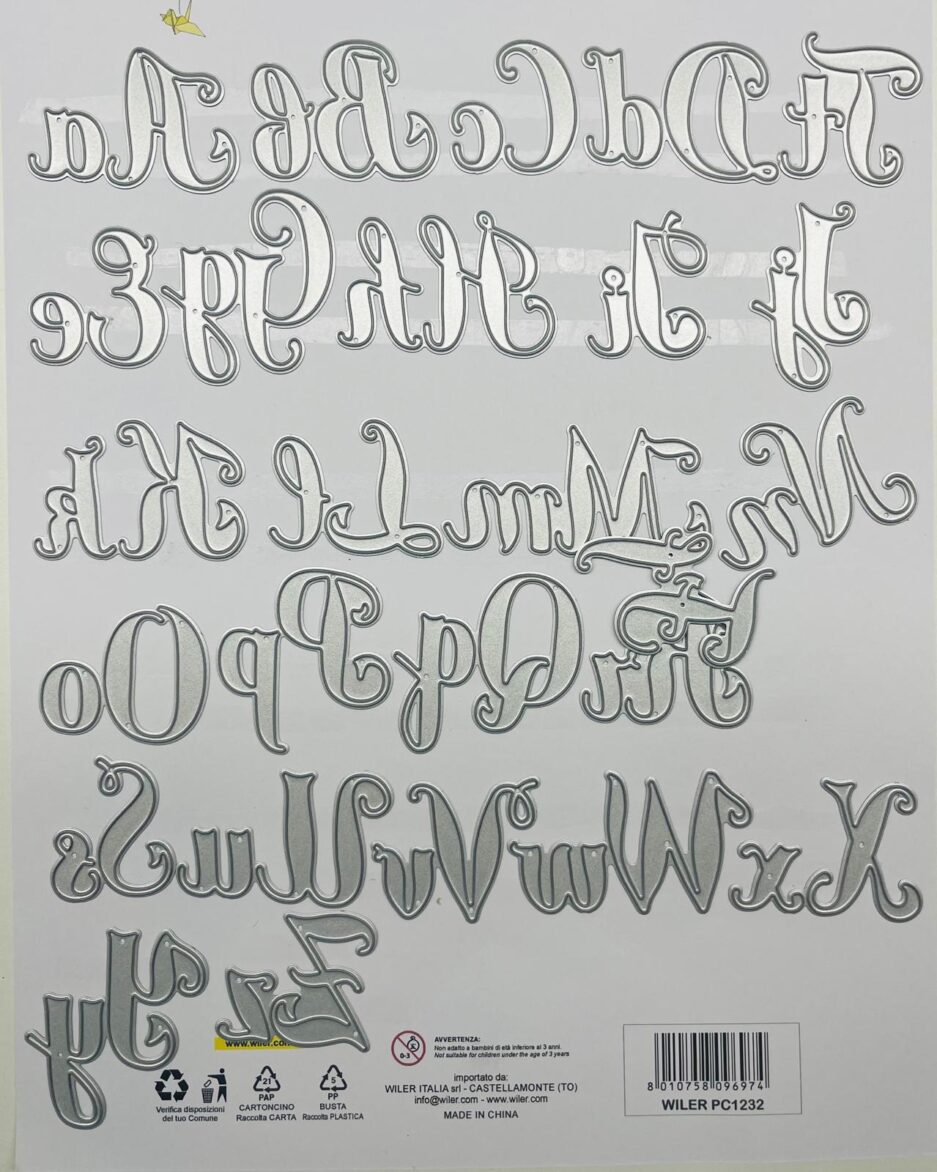 Aa Bb Cc Dd Tt
Ee Gg Hh Ii Jj
Kk Ll Mm Nn
Oo Pp Qq Rr
Ss Uu Vv Ww Xx
Yy Zz
www.wiler.com
Verifica disposizioni
del tuo Comune
21
PAP
CARTONCINO
Raccolta CARTA
5
PP
BUSTA
Raccolta PLASTICA
0-3
AVVERTENZA:
Non adatto a bambini di età inferiore ai 3 anni.
Not suitable for children under the age of 3 years
importato da:
WILER ITALIA srl - CASTELLAMONTE (TO)
info@wiler.com - www.wiler.com
MADE IN CHINA
8 010758 096974
WILER PC1232